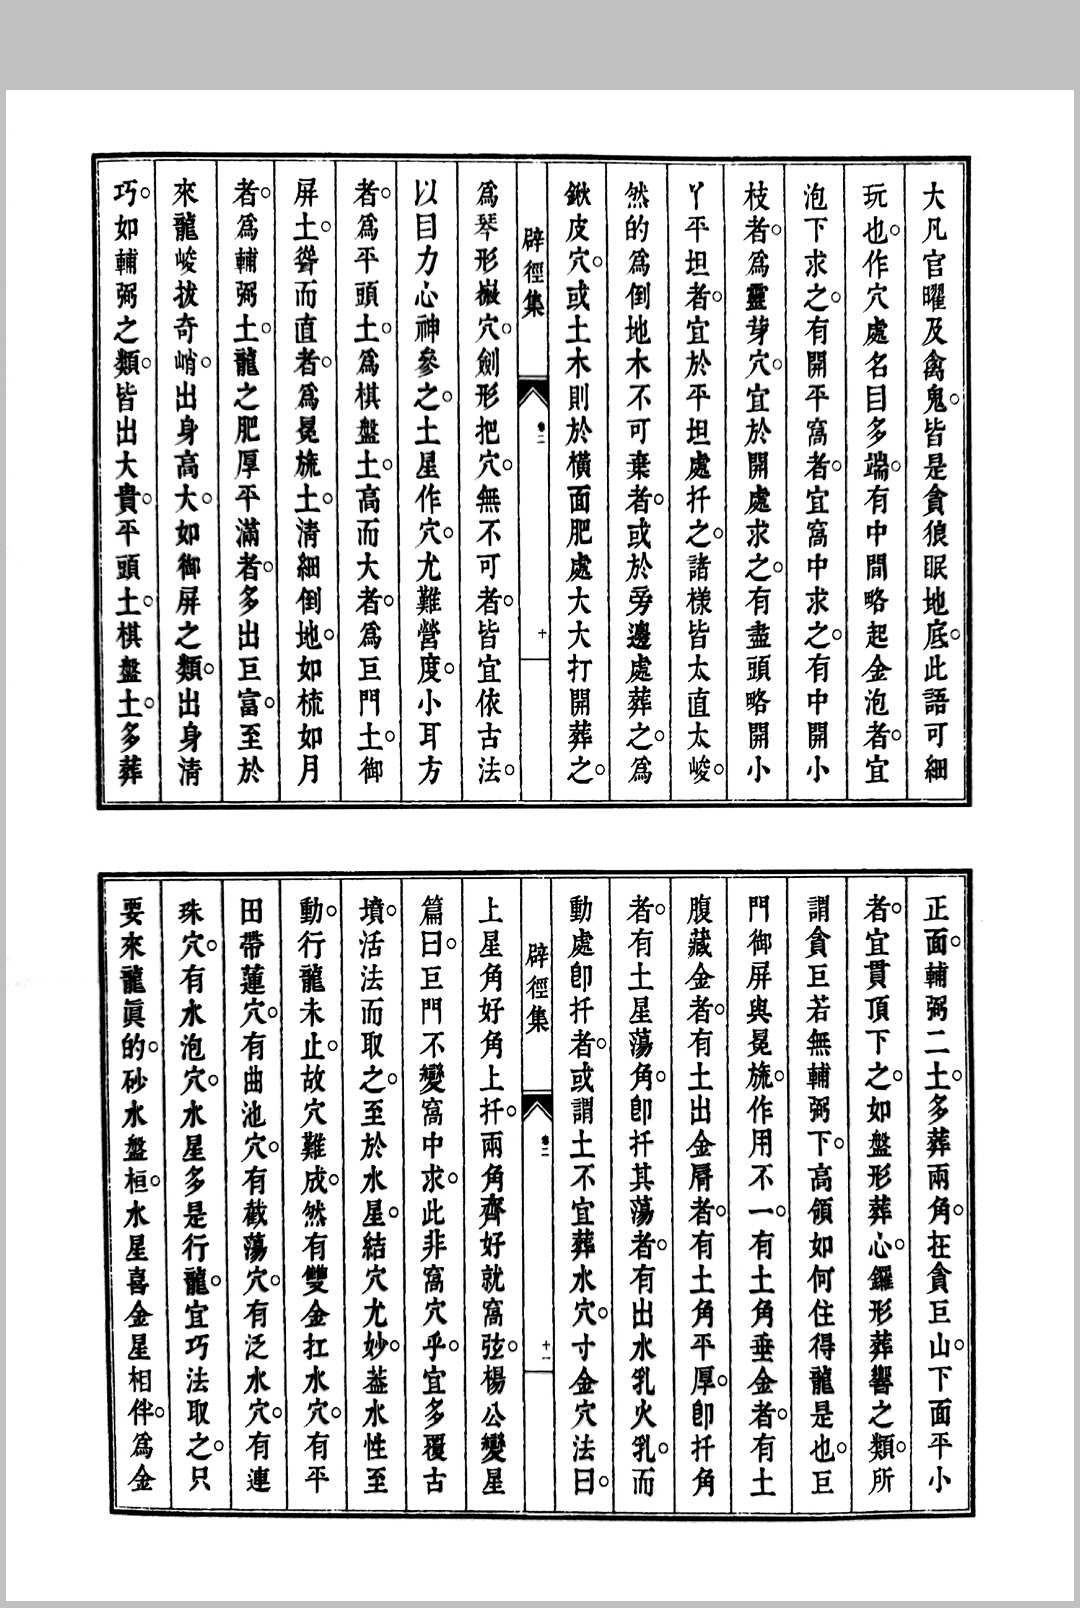 大凡官曜及禽鬼。皆是貪狼眠地底。此語可細
玩也。作穴處名目多端。有中間略起金泡者。宜
泡下求之。有開平窩者。宜窩中求之。有中開小
枝者。爲靈芽穴。宜於開處求之。有盡頭略開小
丫平坦者。宜於平坦處扦之。諸樣皆太直太峻。
然的爲倒地木不可棄者。或於旁邊處葬之。爲
鍬皮穴。或土木則於橫面肥處大大打開葬之。
辟徑集
卷二
十
爲琴形嶽穴。劍形把穴。無不可者。皆宜依古法。
以目力心神參之。土星作穴。尤難營度。小耳方
者。爲平頭土。爲棋盤土。高而大者。爲巨門土。御
屏土。聳而直者。爲冕旒土。清細倒地。如梳如月
者。爲輔弼土。龍之肥厚平滿者。多出巨富。至於
來龍峻拔奇峭。出身高大。如御屏之類。出身清
巧。如輔弼之類。皆出大貴。平頭土。棋盤土。多葬
正面。輔弼二土。多葬兩角。在貪巨山。下面平小
者。宜貫頂下之。如盤形葬心。鑼形葬響之類。所
謂貪巨若無輔弼下。高領如何住得龍是也。巨
門御屏與冕旒。作用不一。有土角垂金者。有土
腹藏金者。有土出金脣者。有土角平厚。卽扦角
者。有土星蕩角。卽扦其蕩者。有出水乳火乳。而
動處卽扦者。或謂土不宜葬水穴。寸金穴法曰。
辟徑集
卷二
十一
上星角好角上扦。兩角齊好就窩弦。楊公變星
篇曰。巨門不變窩中求。此非窩穴乎。宜多覆古
墳。活法而取之。至於水星。結穴尤妙。葢水性至
動。行龍未止。故穴難成。然有雙金扛水穴。有平
田帶蓮穴。有曲池穴。有截蕩穴。有泛水穴。有連
珠穴。有水泡穴。水星多是行龍。宜巧法取之。只
要來龍眞的。砂水盤桓。水星喜金星相伴。爲金